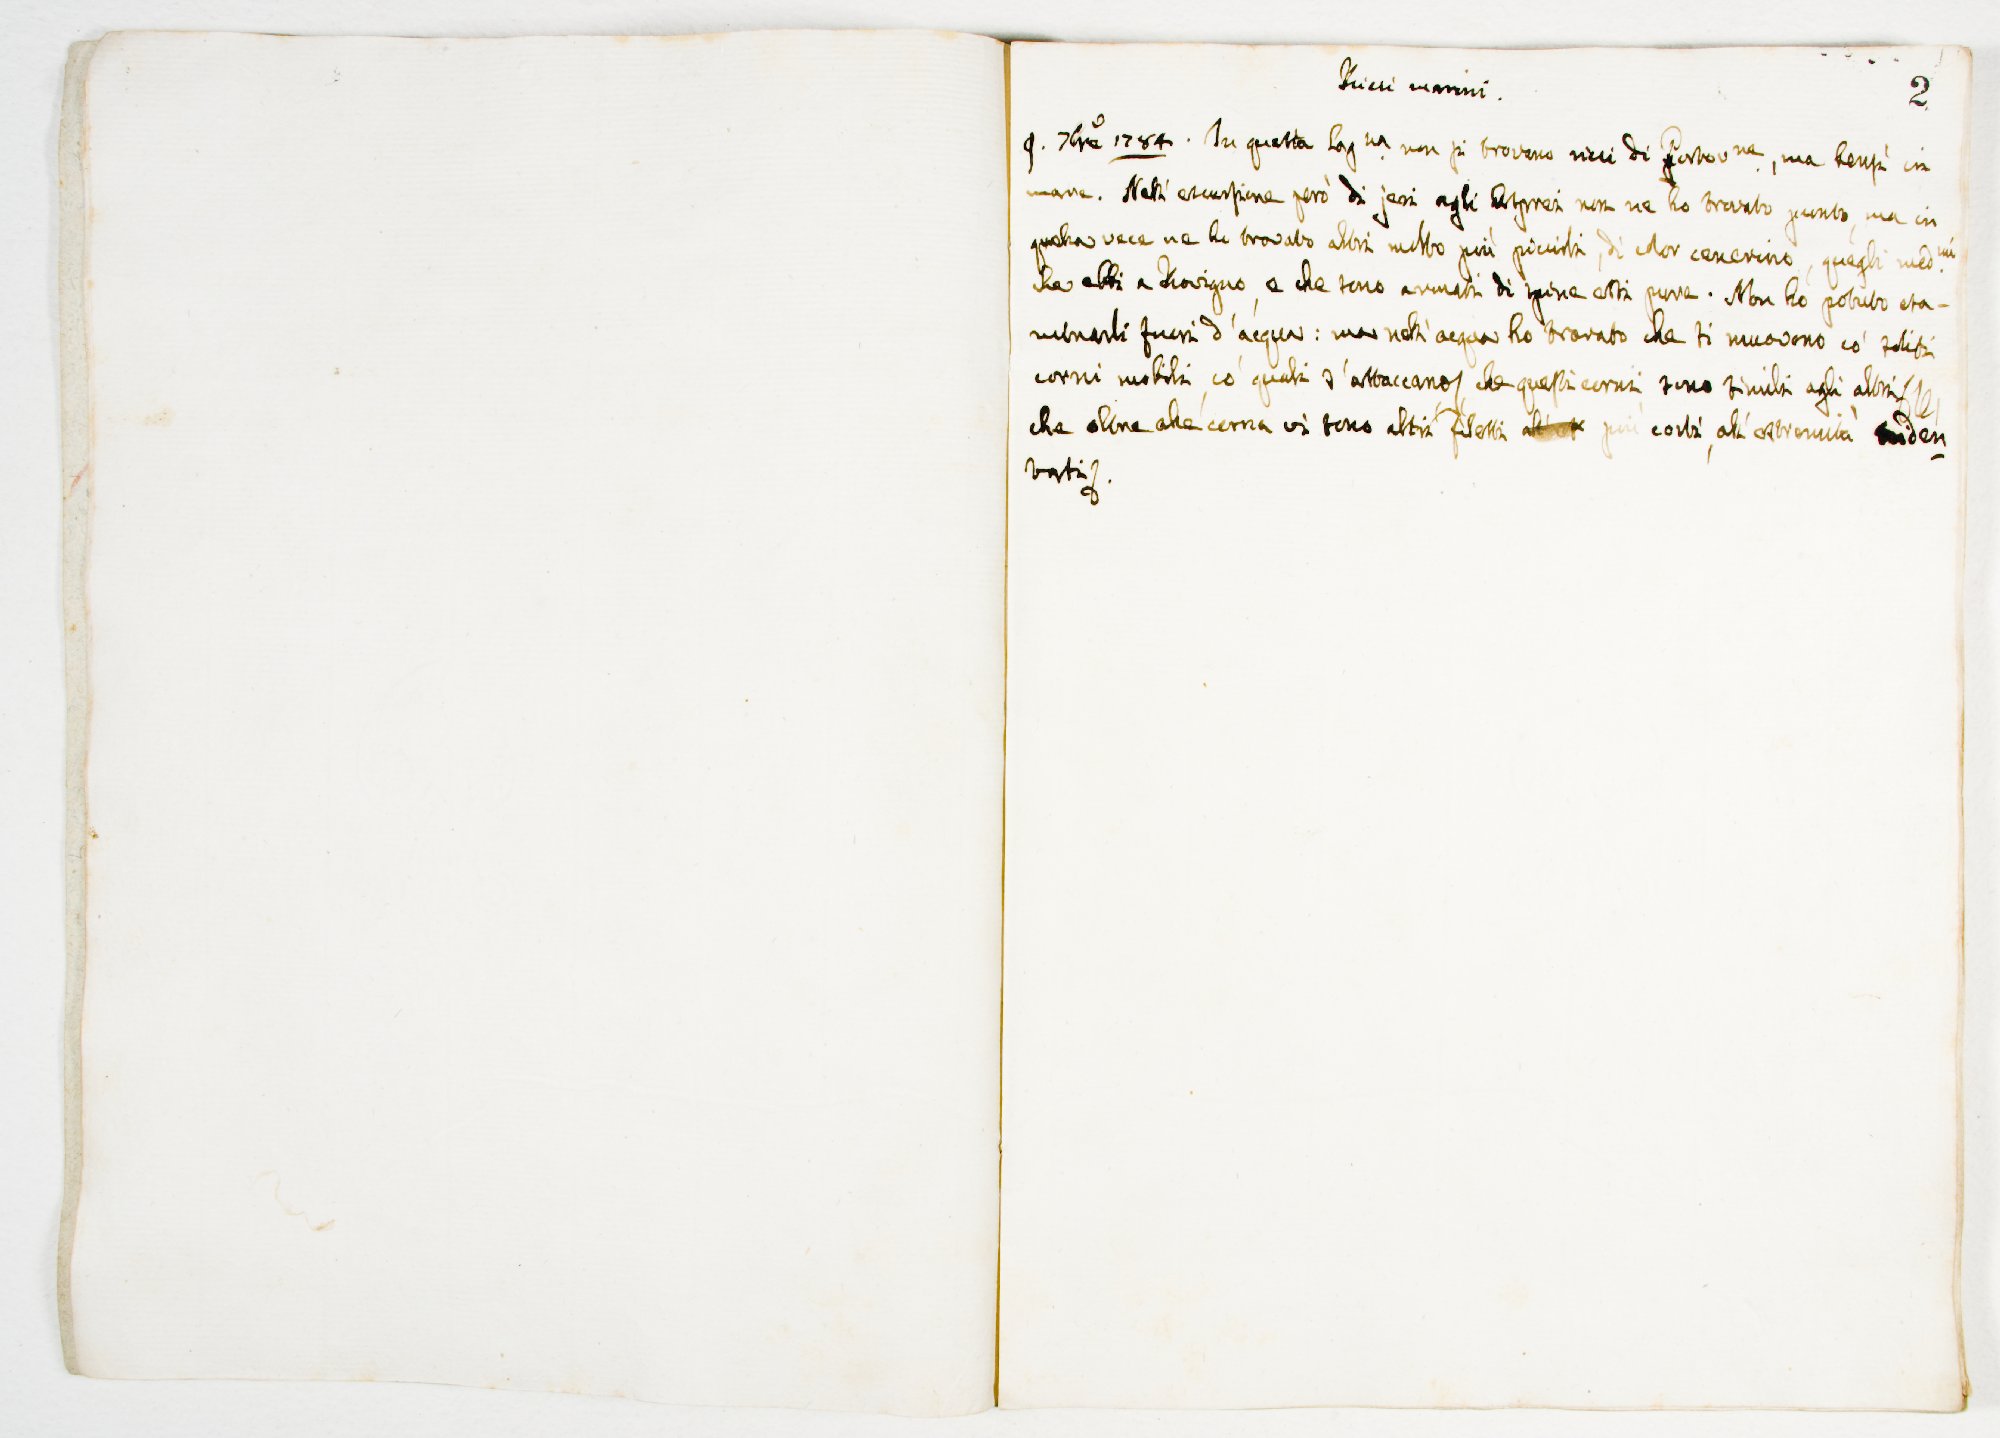 Ricci marini.
2
9. 7bre 1784. In questa Lagna non si trovano ricci di , ma bensì in
mare. Nell' escursione però di jeri agli non ne ho trovato punto, ma in
quella vece ne ho trovato altri molto più piccioli, di color cenerino, quegli medmi
che ebbi a Rovigno, e che sono armati di spine essi pure. Non ho potuto esa-
minarli fuori d'acqua: ma nell'acqua ho trovato che si muovono co' soliti
corni mobili, co' quali s'attaccano, che questi corni sono simili agli altri
che oltre alle corna vi sono altri filetti più corti, all' estremità triden
tati.